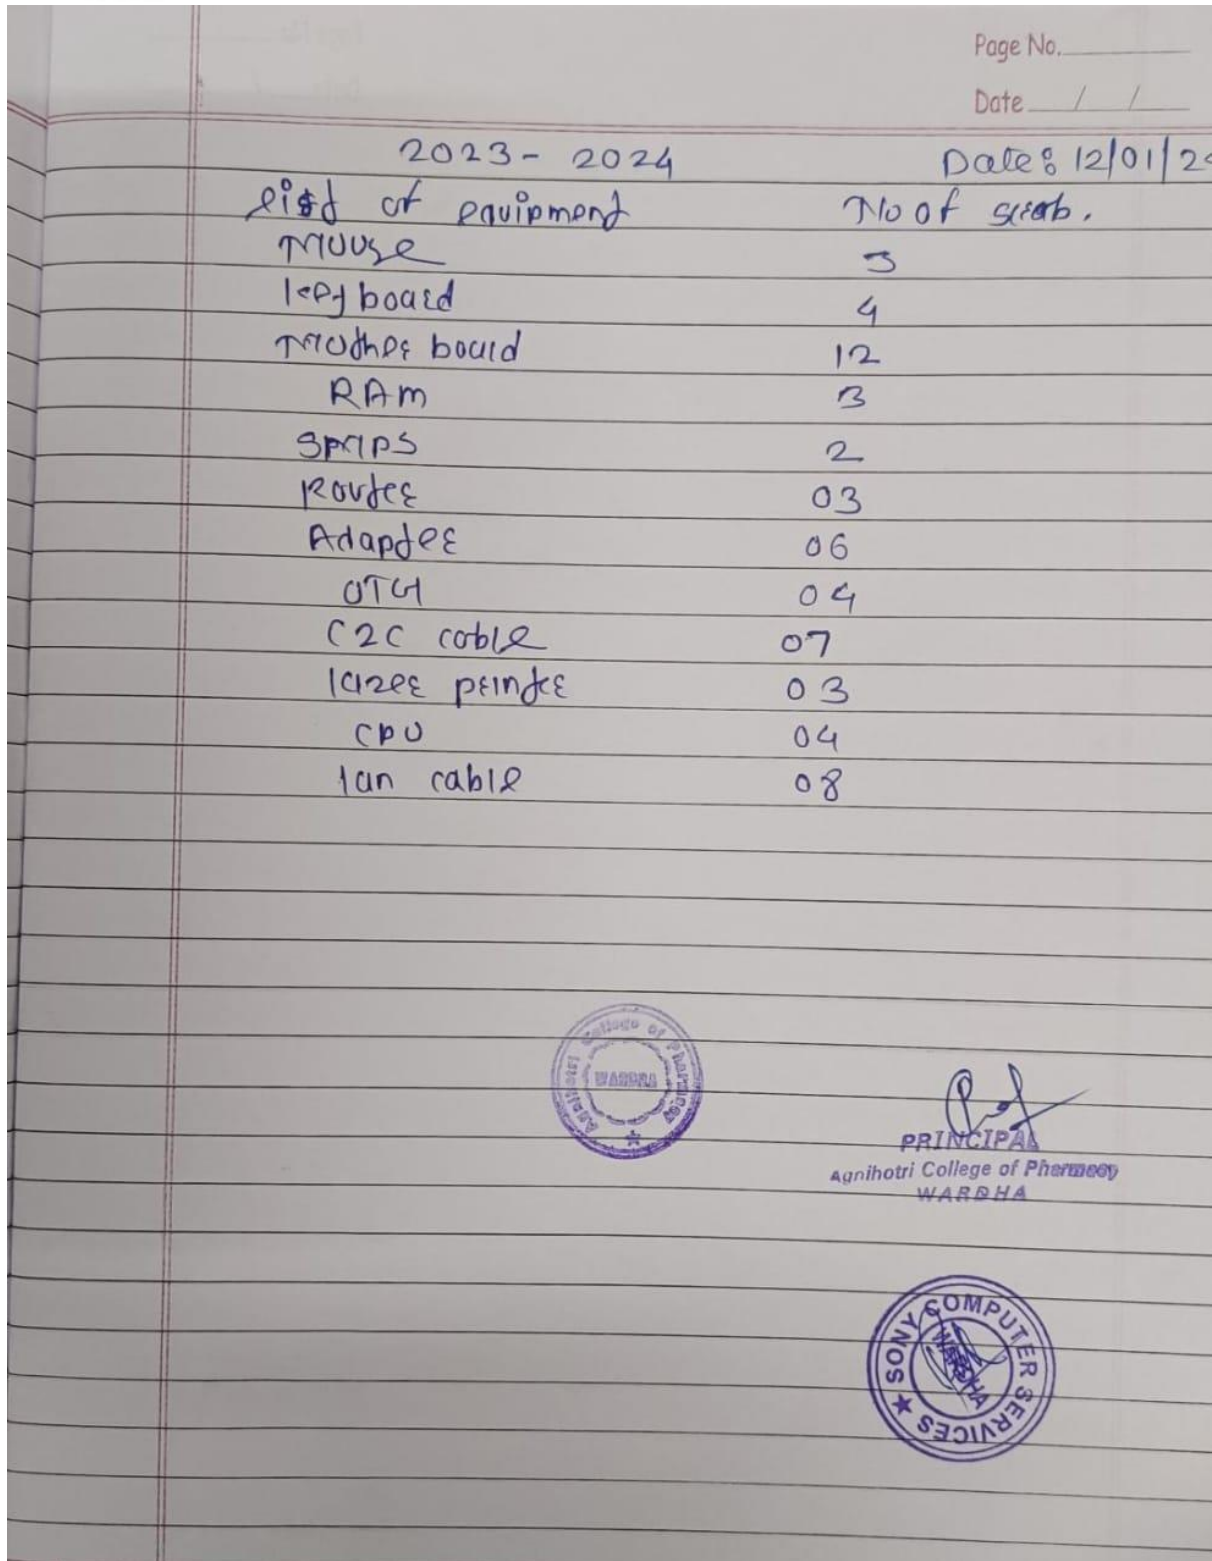 Page No.
Date / /
2023 - 2024 Date: 12/01/24
list of equipment No of scrab.
Mouse 3
key board 4
Mother board 12
RAM 3
SMPS 2
Router 03
Adapter 06
OTG 04
C2C cable 07
lazer printer 03
CPU 04
lan cable 08
Agnihotri College of Pharmacy
WARDHA
PRINCIPAL
Agnihotri College of Pharmacy
WARDHA
SONY COMPUTER SERVICES
WARDHA